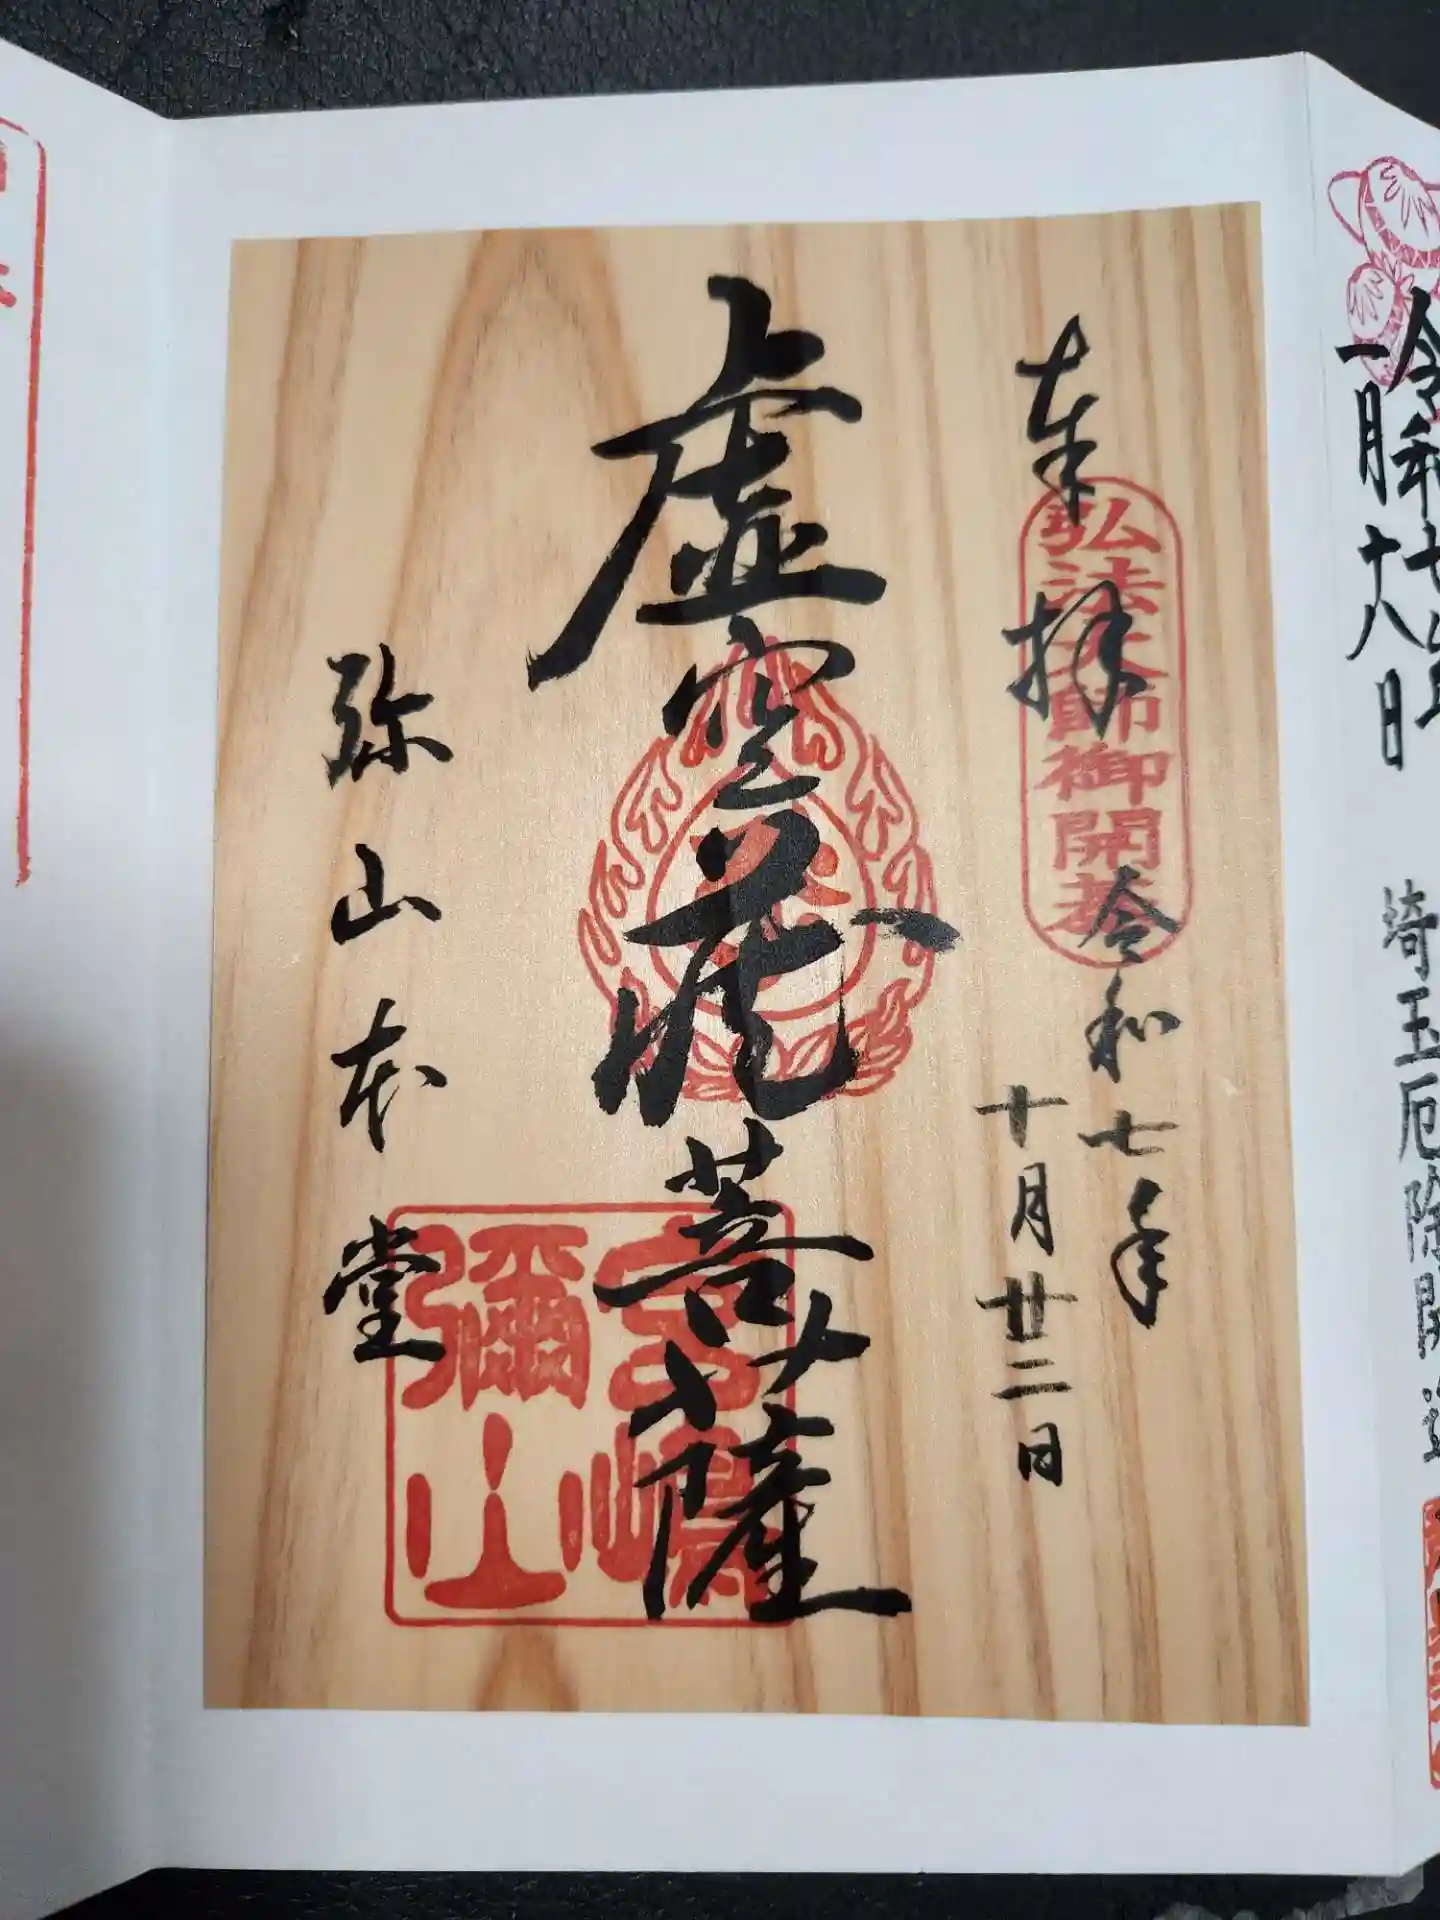 令和七年
一月十八日
埼玉厄除開運
奉拝
弘法大師御開基
令和七年
十月廿二日
虚空蔵菩薩
宮嶋
彌山
弥山本堂